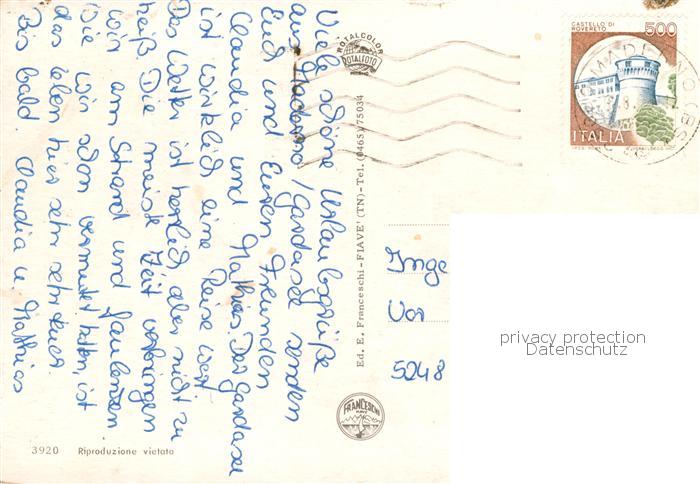 Viele schöne Urlaubsgrüße
aus Maderno/Gardasee senden
Euch und Euren Freunden
Claudia und Mathias Der Gardasee
ist wirklich eine Reise wert.
Das Wetter ist herrlich, aber nicht zu
heiß. Die meiste Zeit verbringen
wir am Strand und faulenzen
Wie wir schon vermutet hatten, ist
das Leben hier sehr sehr teuer.
Bis bald Claudia u. Mathias
3920 Riproduzione vietata
ROTALCOLOR
ROTALFOTO
Ed. E. Franceschi - FIAVE' (TN) - Tel. (0465) 75034
FRANCESCHI
FIAVE
CASTELLO DI
ROVERETO
500
ITALIA
MADERNO
Inge
Vor
5248
privacy protection
Datenschutz